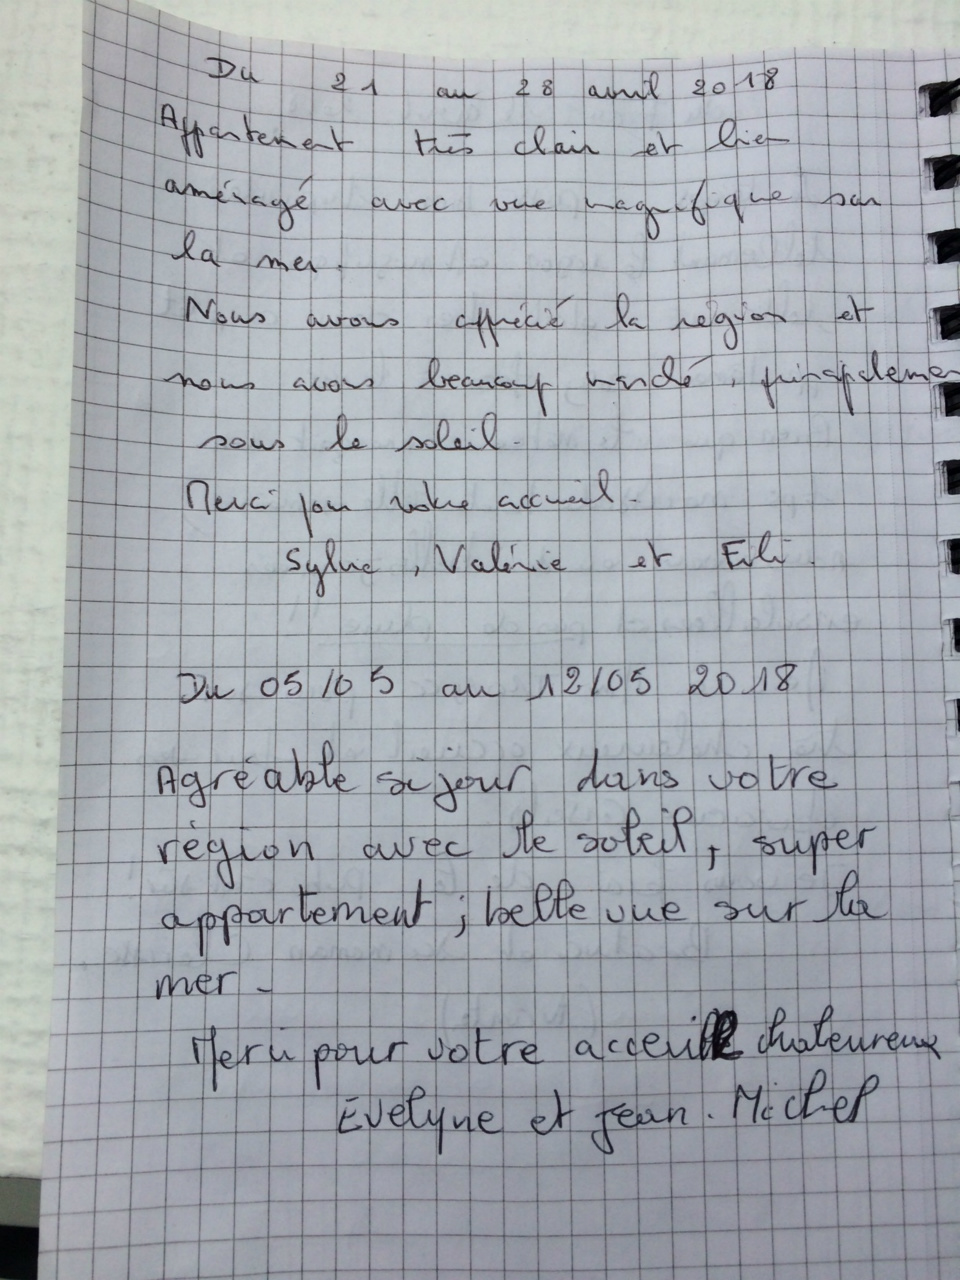 Du 21 au 28 avril 2018
Appartement très clair et bien
aménagé avec vue magnifique sur
la mer.
Nous avons apprécié la région et
nous avons beaucoup marché, principalemen
sous le soleil.
Merci pour votre accueil.
Sylvie, Valérie et
Du 05/05 au 12/05 2018
Agréable séjour dans votre
région avec le soleil, super
appartement ; belle vue sur la
mer -
Merci pour votre acceuil chaleureux
Evelyne et Jean. Michel